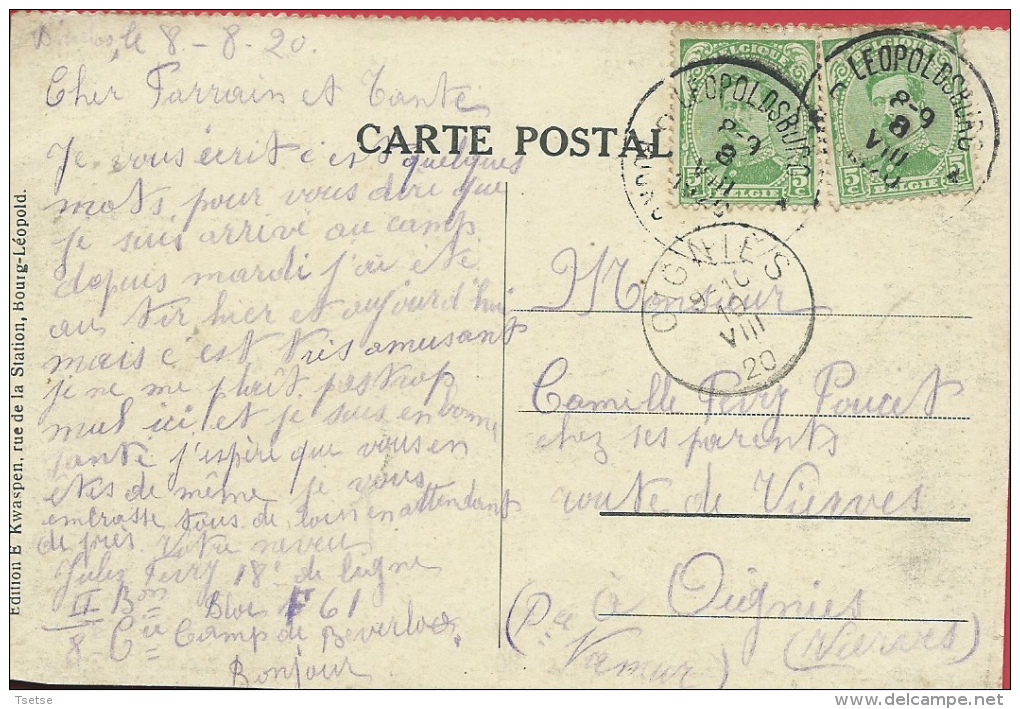 le 8.-8.20.
Cher Parrain et Tante
Je vous écrit c'est quelques
mots pour vous dire que
je suis arrivé au camp
depuis mardi j'ai été
au tir hier et aujourd'hui
mais c'est très amusant
je ne me plait pas trop
mal ici et je suis en bonne
santé j'espère que vous en
êtes de même je vous
embrasse tous de loin en attendant
de près. Votre neveu
Jules Fevry 18e de ligne
II Bon Bloc N° 61
8. Cie Camp de Beverloo.
Bonjour
Edition E Kwaspen, rue de la Station, Bourg-Léopold.
CARTE POSTAL
BELGIQUE
5c
BELGIE
BELGIQUE
5c
BELGIE
LEOPOLDSBURG
8-9
8
VIII
1920
LEOPOLDSBURG
8-9
8
VIII
OIGNIES
9-10
10
VIII
20
Monsieur
Camille Fevry Poucet
chez ses parents
route de Vierves
à Oignies
(Vierves)
(Pce
Namur)
Tsetse